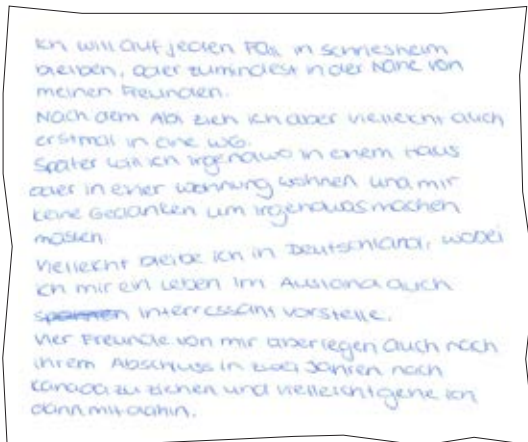 Ich will auf jeden Fall in Schriesheim
bleiben, oder zumindest in der Nähe von
meinen Freunden.
Nach dem Abi zieh ich aber vielleicht auch
erstmal in eine WG.
Später will ich irgendwo in einem Haus
oder in einer Wohnung wohnen und mir
keine Gedanken um irgendwas machen
müssen.
Vielleicht bleibe ich in Deutschland, wobei
ich mir ein Leben im Ausland auch
spannen interressant vorstelle.
Vier Freunde von mir überlegen auch nach
ihrem Abschluss in zwei Jahren nach
Kanada zu ziehen und vielleicht gehe ich
dann mit dahin.